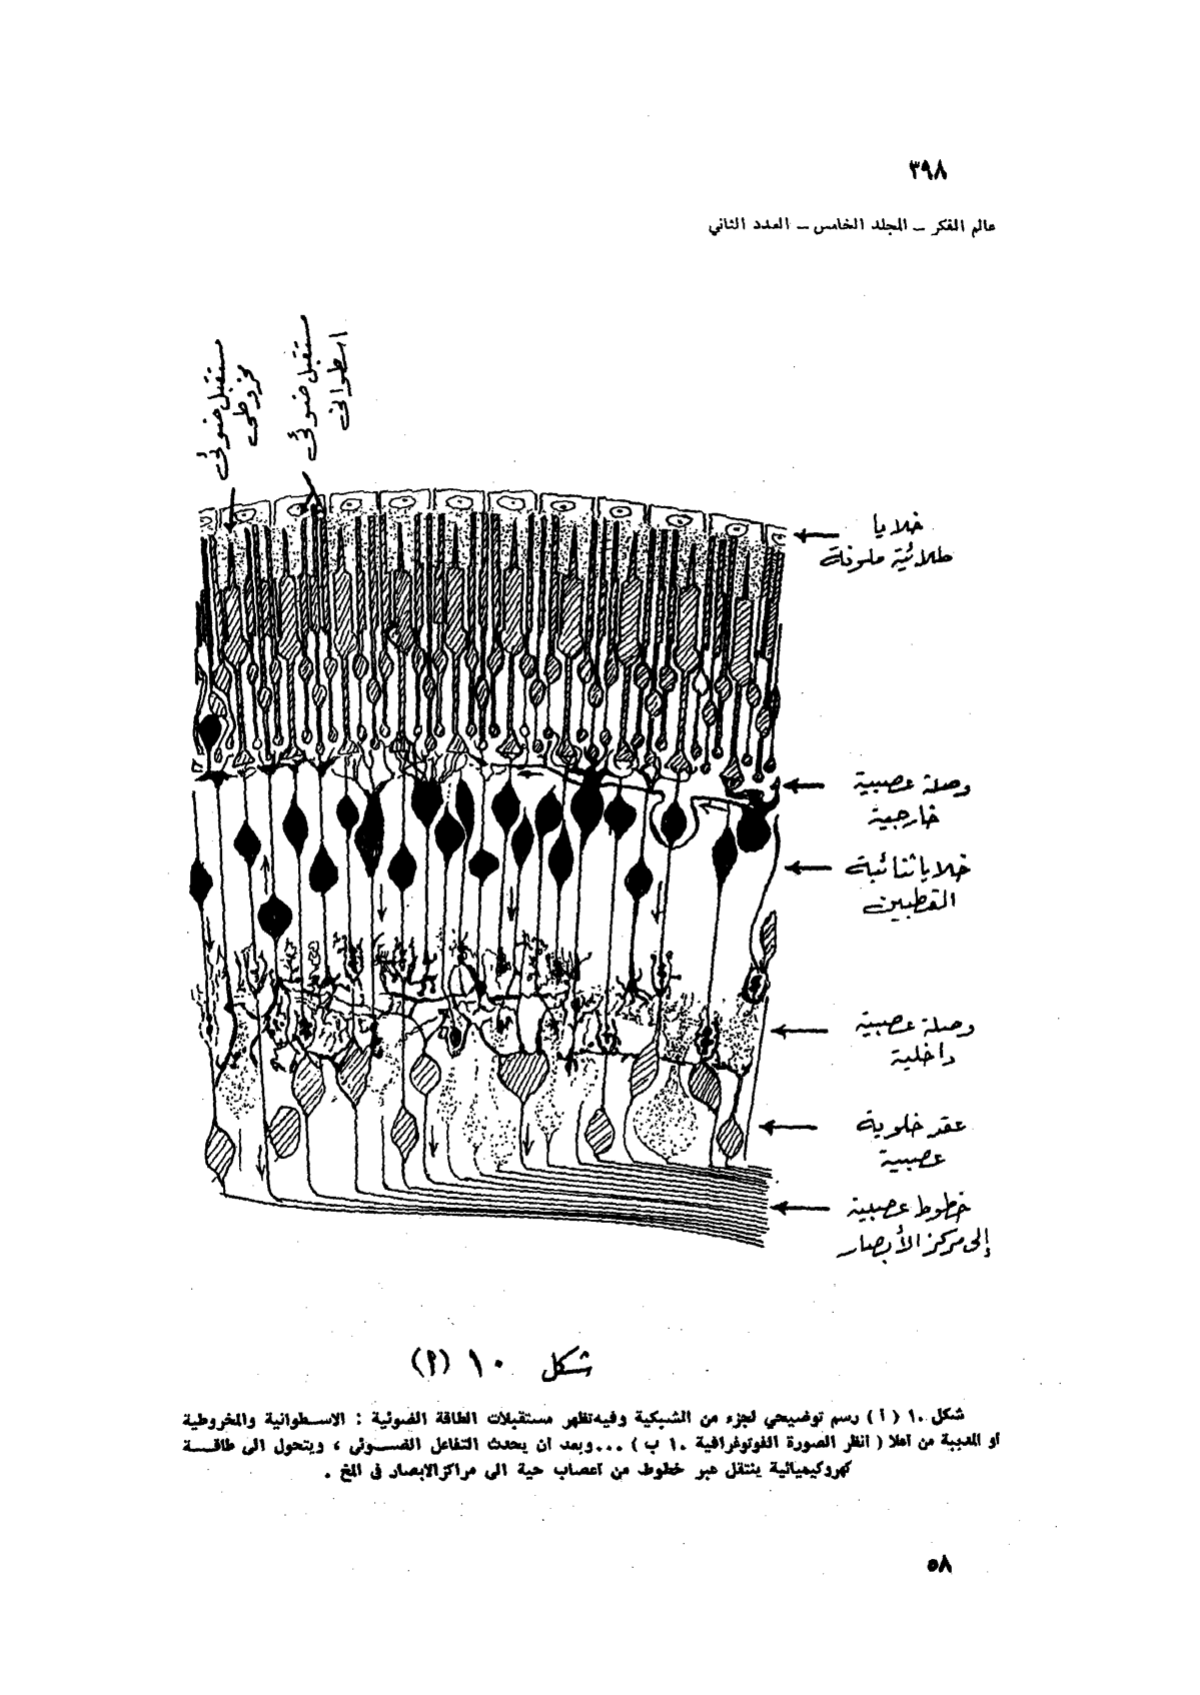 ٣٩٨
عالم الفكر – المجلد الخامس – العدد الثاني
مستقبل ضوئى
مخروطى
مستقبل ضوئى
اسطوانى
خلايا
طلائية ملونة
وصلة عصبية
خارجية
خلايا ثنائية
القطبين
وصلة عصبية
داخلية
عقد خلوية
عصبية
خطوط عصبية
إلى مركز الأبصار
شكل ١٠ (٢)
شكل ١٠ ( أ ) رسم توضيحي لجزء من الشبكية وفيه تظهر مستقبلات الطاقة الضوئية : الاسطوانية والمخروطية
او المدببة من اعلا ( انظر الصورة الفوتوغرافية ١٠ ب ) ... وبعد ان يحدث التفاعل الضوئى ، ويتحول الى طاقة
كهروكيميائية ينتقل عبر خطوط من اعصاب حية الى مراكز الابصار فى المخ .
٥٨